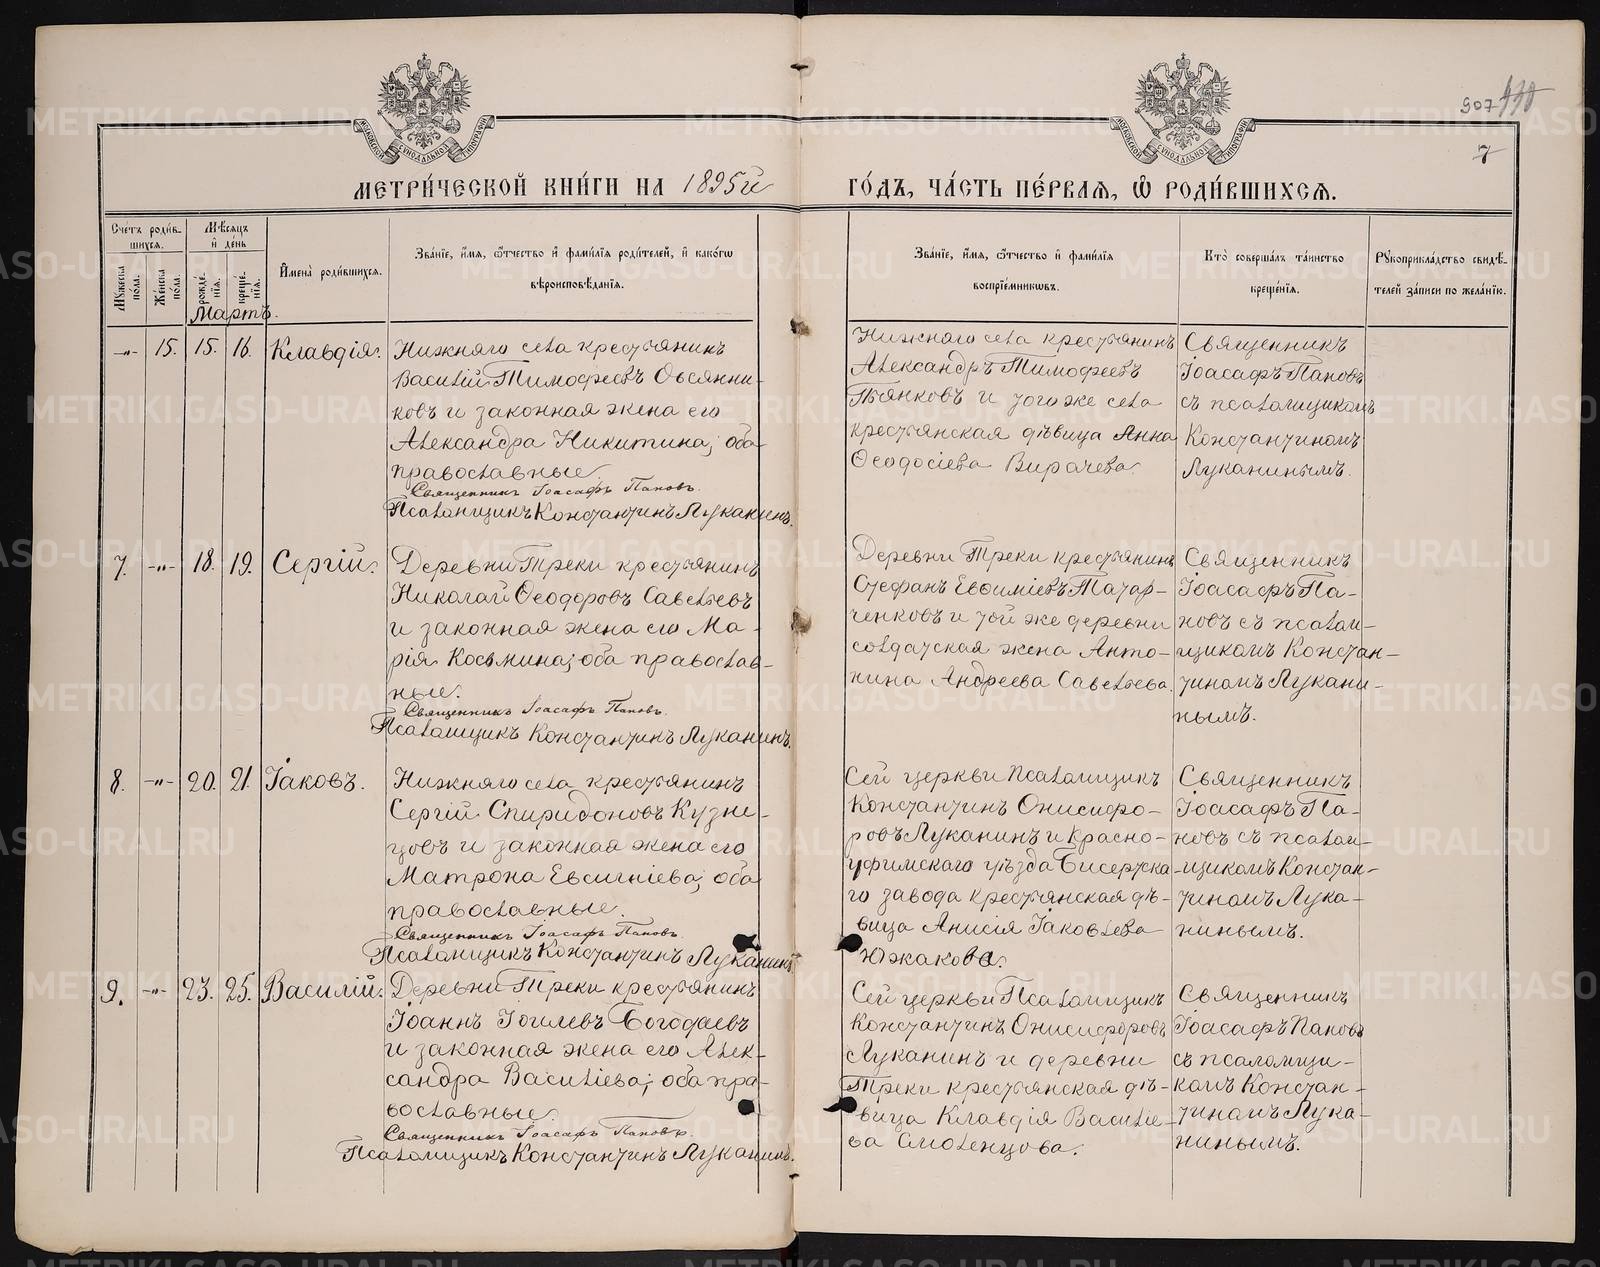 907 110
7
МЕТРИ́ЧЕСКОЙ КНИ́ГИ НА 1895й ГО́ДЪ, ЧА́СТЬ ПЕ́РВАѦ, Ѽ РОДИ́ВШИХСѦ.
Счетъ роди́в-
шихсѧ.
Мꙋжеска по́ла.
Же́нска по́ла.
Мѣ́сѧцъ
и҆ де́нь
рожде́-
нїѧ.
креще́-
нїѧ.
И҆мена̀ роди́вшихсѧ.
Зва́нїе, и҆́мѧ, ѻ҆́тчество и҆ фами́лїѧ роди́телей, и҆ како́гѡ
вѣроисповѣ́данїѧ.
Зва́нїе, и҆́мѧ, ѻ҆́тчество и҆ фами́лїѧ
воспрїе́мникѡвъ.
Кто̀ соверша́лъ та́инство
креще́нїѧ.
Рꙋкоприкла́дство свидѣ́-
телей за́писи по жела́нїю.
Мартъ.
-"- 15. 15. 16. Клавдія.
Нижняго села крестьянинъ
Василій Тимофеевъ Овсянни-
ковъ и законная жена его
Александра Никитина; оба
православные.
Священникъ Іоасафъ Пановъ.
Псаломщикъ Константинъ Луканинъ.
Нижняго села крестьянинъ
Александръ Тимофеевъ
Пьянковъ и того же села
крестьянская дѣвица Анна
Ѳеодосіева Вирачева
Священникъ
Іоасафъ Пановъ
съ псаломщикомъ
Константиномъ
Луканинымъ.
7. -"- 18. 19. Сергій.
Деревни Треки крестьянинъ
Николай Ѳеодоровъ Савельевъ
и законная жена его Ма-
рія Косьмина; оба православ-
ные.
Священникъ Іоасафъ Пановъ.
Псаломщикъ Константинъ Луканинъ.
Деревни Треки крестьянинъ
Стефанъ Евѳиміевъ Татар-
ченковъ и той же деревни
солдатская жена Анто-
нина Андреева Савельева.
Священникъ
Іоасафъ Па-
новъ съ псалом-
щикомъ Констан-
тиномъ Лукани-
нымъ.
8. -"- 20. 21. Іаковъ.
Нижняго села крестьянинъ
Сергій Спиридоновъ Кузне-
цовъ и законная жена его
Матрона Евсигніева; оба
православные.
Священникъ Іоасафъ Пановъ
Псаломщикъ Константинъ Луканинъ
Сей церкви Псаломщикъ
Константинъ Онисифо-
ровъ Луканинъ и Красно-
уфимскаго уѣзда Бисертска-
го завода крестьянская дѣ-
вица Анисія Іаковлева
Южакова.
Священникъ
Іоасафъ Па-
новъ съ псалом-
щикомъ Констан-
тиномъ Лука-
нинымъ.
9. -"- 23. 25. Василій.
Деревни Треки крестьянинъ
Іоаннъ Іоилевъ Богодаевъ
и законная жена его Алек-
сандра Василіева; оба пра-
вославные.
Священникъ Іоасафъ Пановъ.
Псаломщикъ Константинъ Луканинъ.
Сей церкви Псаломщикъ
Константинъ Онисифоровъ
Луканинъ и деревни
Треки крестьянская дѣ-
вица Клавдія Василіе-
ва Смоленцова.
Священникъ
Іоасафъ Пановъ
съ псаломщи-
комъ Констан-
тиномъ Лука-
нинымъ.